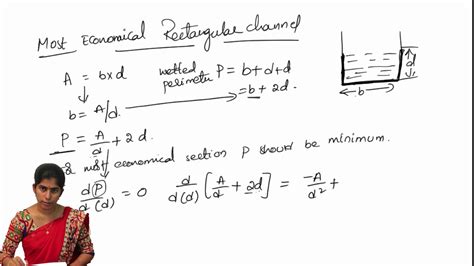 Most Economical Rectangular channel
A = b×d
wetted perimeter P = b+d+d
= b + 2d.
b = A/d.
P = A/d + 2d.
most economical section P should be minimum.
d(P)/d(d) = 0 d/d(d) [A/d + 2d] = -A/d² +
d
b